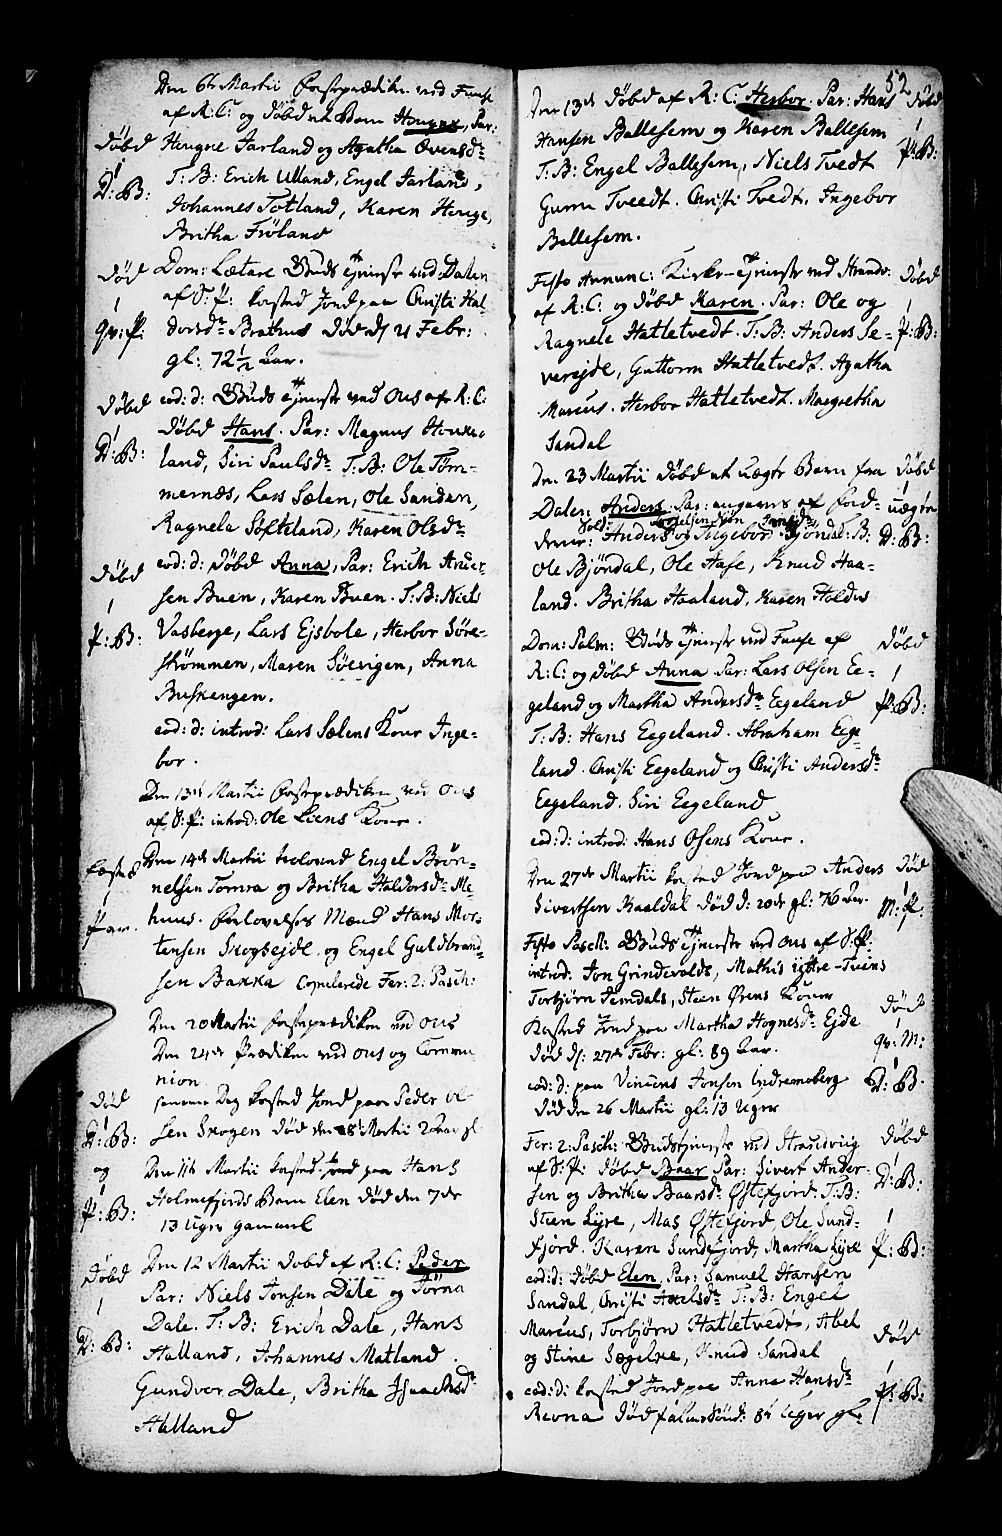 52
Den 6te Martii fasteprædiken ved Fuuse
af R: C: og døbd et Barn Hougne, Par:
døbd
1
D: B:
Hougne Jarland og Agatha Ovensdr
T: B: Erich Ulland, Engel Jarland,
Johannes Totland, Karen Houge,
Britha Fröland
død
1
Qv: P:
Dom: Lætare Gudstjeneste ved Dalen
af S: P: kasted Jord paa Christi Hal-
dorsdr Brathuus død d 21 Febr:
gl: 72 1/2 aar.
døbd
1
D: B:
eod: d: Gudstjeneste ved Ous af R: C:
døbd Hans. Par: Magnus Houke-
land, Siri Paulsdr T: B: Ole Tøm-
mernæs, Lars Sælen, Ole Sanden,
Ragnela Søfteland, Karen Olsdr
døbd
1
P: B:
eod: d: døbd Anna, Par: Erich Ander-
sen Buen, Karen Buen. T: B: Niels
Vasberge, Lars Ejsbole, Herbor Søre-
strömmen, Maren Söevigen, Anna
Buskengen.
eod: d: introd: Lars Sælens Kone Inge-
bor.
Den 13de Martii fasteprædiken ved Ous
af S: P: introd: Ole Liens Kone.
fæsted
1
Par.
Den 14de Martii trolovud Engel Brön-
nelsen Tomra og Britha Haldorsdr Me-
huus. Forlovelses Mænd Hans Mor-
tensen Skogsejde og Engel Guldbrand-
sen Bakka Copulerede Fer: 2: Pasch:
Den 20 Martii fasteprædiken ved Ous
Den 24de Prædiken ved Ous og Commu-
nion
død
1
D: B:
samme Dag kasted Jord paa Peder Ol-
sen Skogen død den 18 Martii 2 aar gl
og
1
P: B:
Den 11te Martii kasted Jord paa Hans
Holmefjords Barn Elen død den 7de
13 Uger gammel
døbd
1
D: B:
Den 12 Martii døbd af R: C: Peder
Par: Niels Jonsen Dale og Törna
Dale. T: B: Erich Dale, Hans
Halland, Johannes Matland.
Gundvor Dale, Britha Isaachsdr
Halland
Den 13de døbd af R: C: Herbor. Par: Hans
Hansen Ballesem og Karen Ballesem
T: B: Engel Ballesem, Niels Tvedt
Guru Tveedt. Christi Tvedt. Ingebor
Ballesem.
døbd
1
P: B:
Festo Annunc: Kirke-Tjeneste ved Strandv:
af R: C: og døbd Karen. Par: Ole og
Ragnele Hatletvedt. T: B: Anders Se-
verejde, Guttorm Hatletvedt. Agatha
Marcus. Herbor Hatletvedt. Margretha
Sandal
døbd
1
P: B:
Den 23 Martii døbd et uægte Barn fra
Dalen: Anders. Par: angives af
Anders og Ingebor Bjöndal: B:
Ole Bjöndal, Ole Hase, Knud Haa-
land. Britha Haaland, Karen Holdus
døbd
1
uægte
D: B:
Dom: Palm: Gudstjeneste ved Fuuse af
R: C: og døbd Anna Par: Lars Olsen Ee-
geland og Martha Andersdr Eegeland
T: B: Hans Eegeland. Abraham Eege-
land. Christi Eegeland og Christi Andersdr
Eegeland. Siri Eegeland
døbd
1
P: B:
eod: d: introd: Hans Osens Kone.
Den 27de Martii kasted Jord paa Anders
Sivertsen Kaaldal død d: 20de gl: 76 aar.
død
1
M: P:
Festo Pasch: Gudstjeneste ved Ous af S: P:
introd: Jon Grindevolds, Mathis yttre-Tviens
Torbjörn Jemdals, Steen Örens Koner
Kasted Jord paa Martha Hognesdr Ejde
død d: 27de Febr: gl: 89 aar.
død
1
Qv: M:
eod: d: paa Vincens Jonsen Indremoberg
død den 26 Martii gl: 13 Uger
1
D: B:
Fer: 2: Pasch: Gudstjeneste ved Strandviig
af S: P: døbd Baar Par: Sivert Ander-
sen og Britha Baarsdr Østefjord T: B:
Steen Lyre, Mas Østefjord, Ole Sund-
fjord. Karen Sundefjord, Martha Lyre
døbd
1
D: B:
eod: d: døbd Elen, Par: Samuel Hansen
Sandal, Christi Axelsdr T: B: Engel
Marcus, Torbjörn Hatletvedt, Abel
og Stine Sægelne, Knud Sandal
1
P: B:
eod: d: kasted Jord paa Anna Hansdr
Revna død Palmesönd: 8te Uger gl:
død
1
P: B: